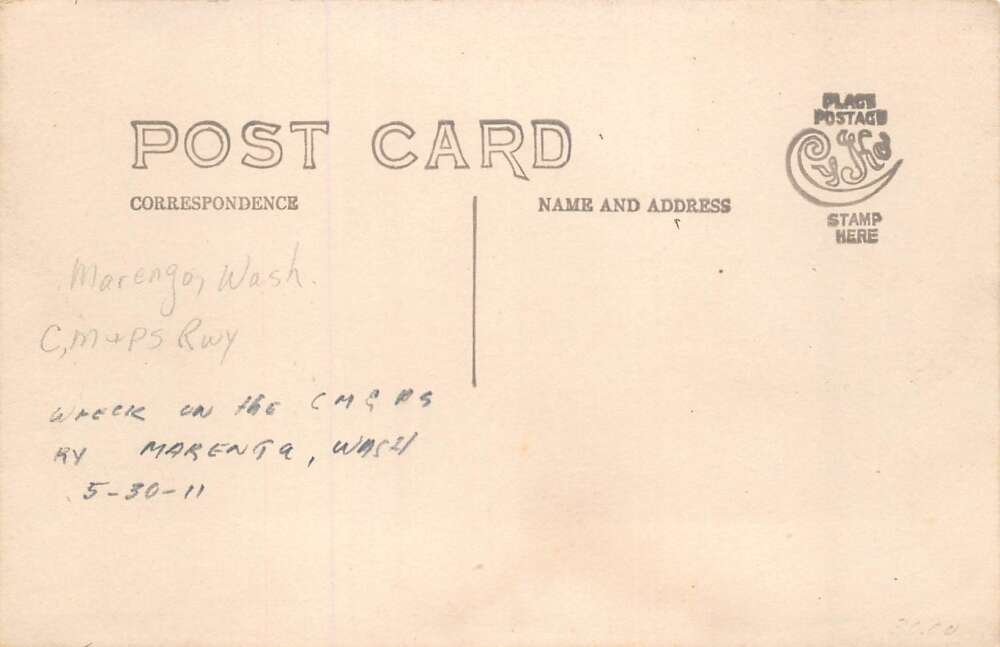 POST CARD
CORRESPONDENCE
NAME AND ADDRESS
PLACE
POSTAGE
STAMP
HERE
Marengo, Wash.
C, M + PS Rwy
WRECK ON the CM & PS
RY MARENGO, WASH
5-30-11